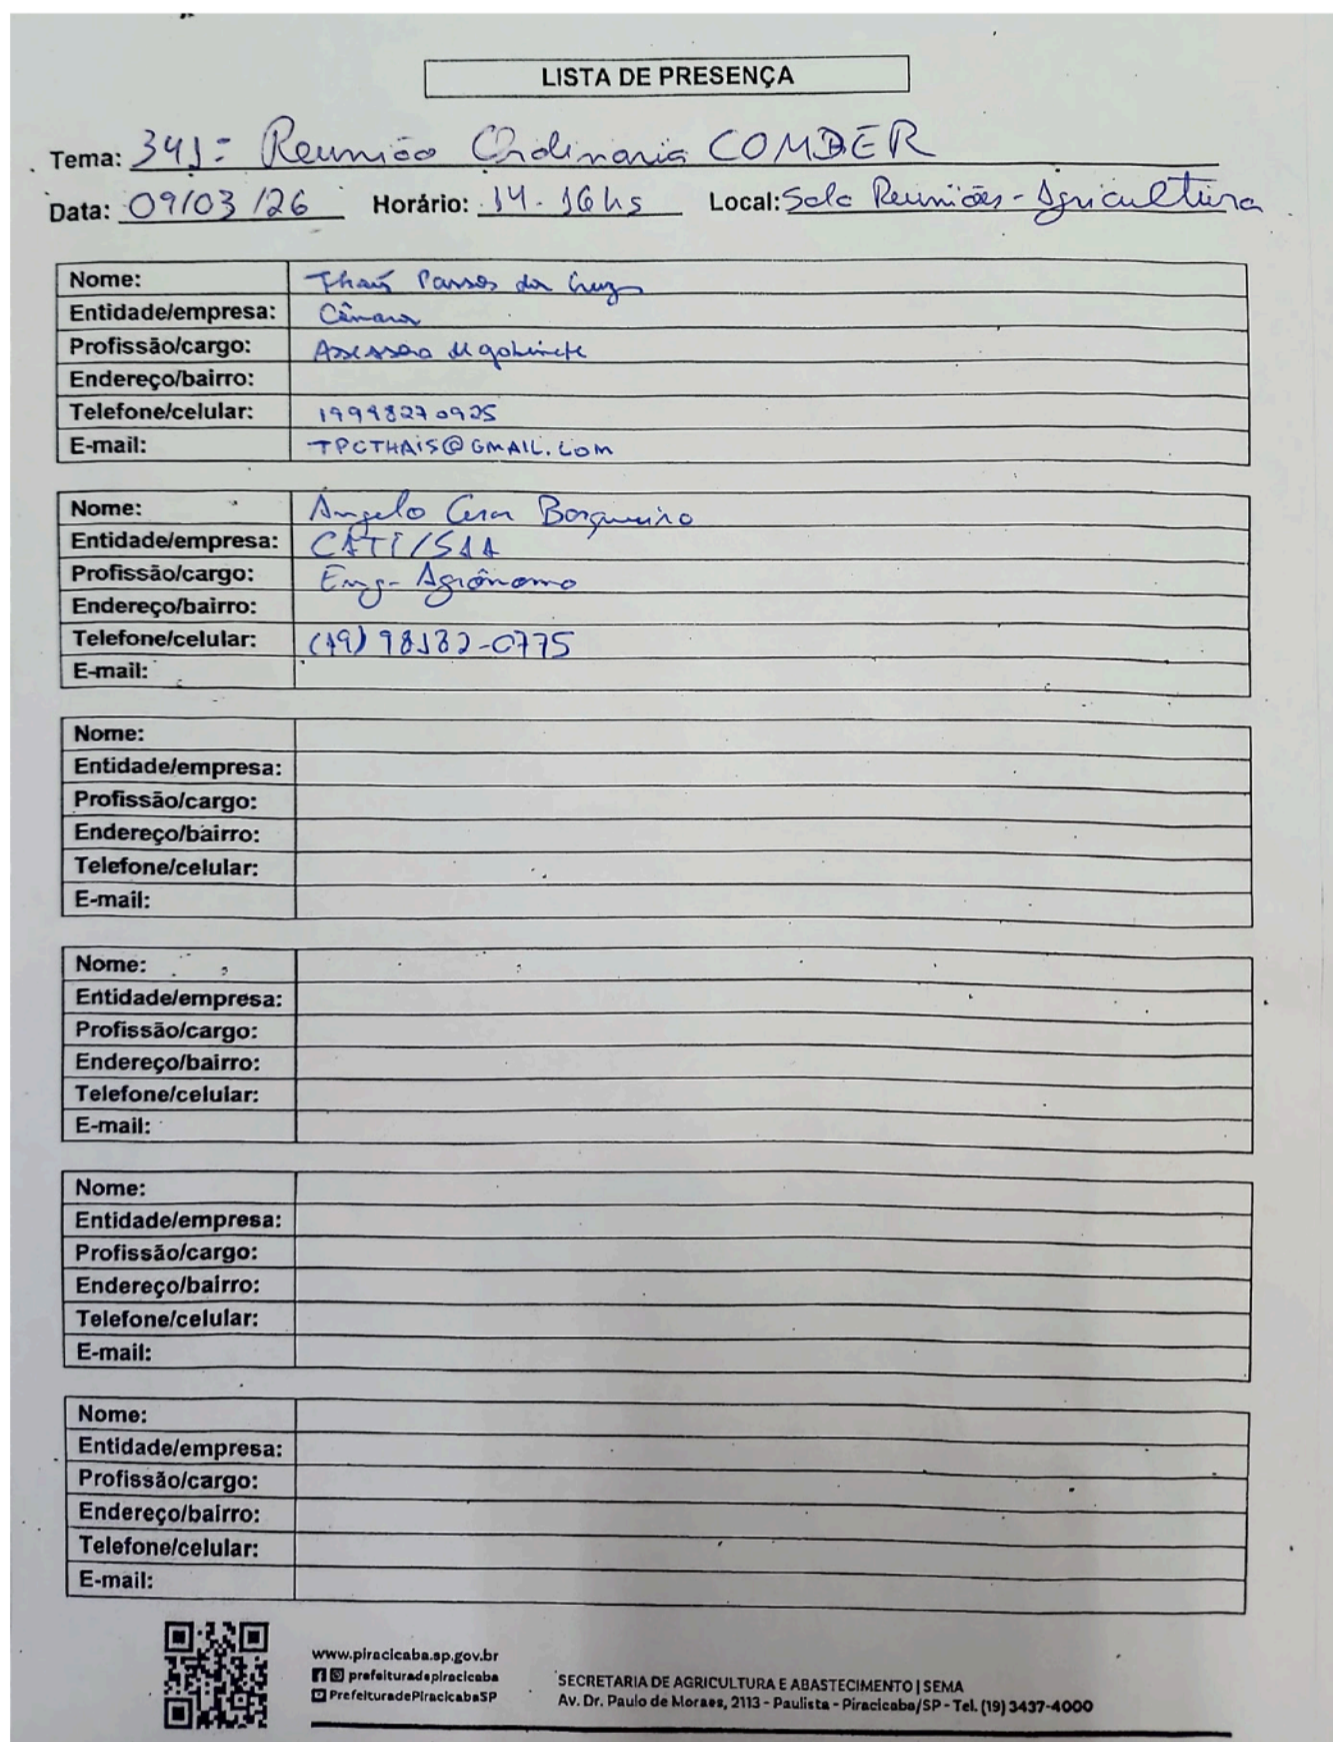 LISTA DE PRESENÇA
Tema: 341ª Reunião Ordinaria COMDER
Data: 09/03/26 Horário: 14-16hs Local: Sala Reuniões - Agricultura
Nome: Thaís Passos da Cruz
Entidade/empresa: Câmara
Profissão/cargo: Assessora de gabinete
Endereço/bairro:
Telefone/celular: 19998270925
E-mail: TPCTHAIS@GMAIL.COM
Nome: Angelo Cesar Bosqueiro
Entidade/empresa: CATI/SAA
Profissão/cargo: Eng- Agrônomo
Endereço/bairro:
Telefone/celular: (19) 98132-0775
E-mail:
Nome:
Entidade/empresa:
Profissão/cargo:
Endereço/bairro:
Telefone/celular:
E-mail:
Nome:
Entidade/empresa:
Profissão/cargo:
Endereço/bairro:
Telefone/celular:
E-mail:
Nome:
Entidade/empresa:
Profissão/cargo:
Endereço/bairro:
Telefone/celular:
E-mail:
Nome:
Entidade/empresa:
Profissão/cargo:
Endereço/bairro:
Telefone/celular:
E-mail:
www.piracicaba.sp.gov.br
prefeituradepiracicaba
PrefeituradePiracicabaSP
SECRETARIA DE AGRICULTURA E ABASTECIMENTO | SEMA
Av. Dr. Paulo de Moraes, 2113 - Paulista - Piracicaba/SP - Tel. (19) 3437-4000